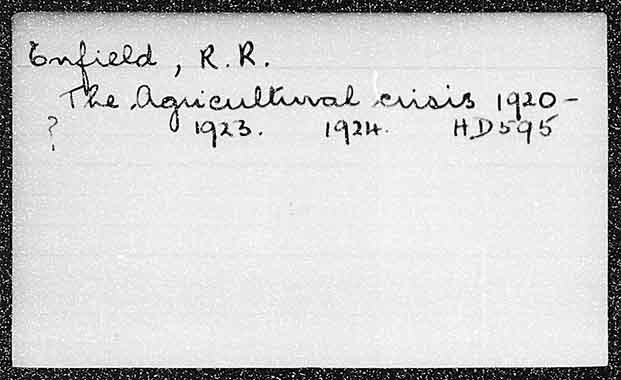 Enfield, R.R.
The Agricultural crisis 1920-
? 1923. 1924. HD595